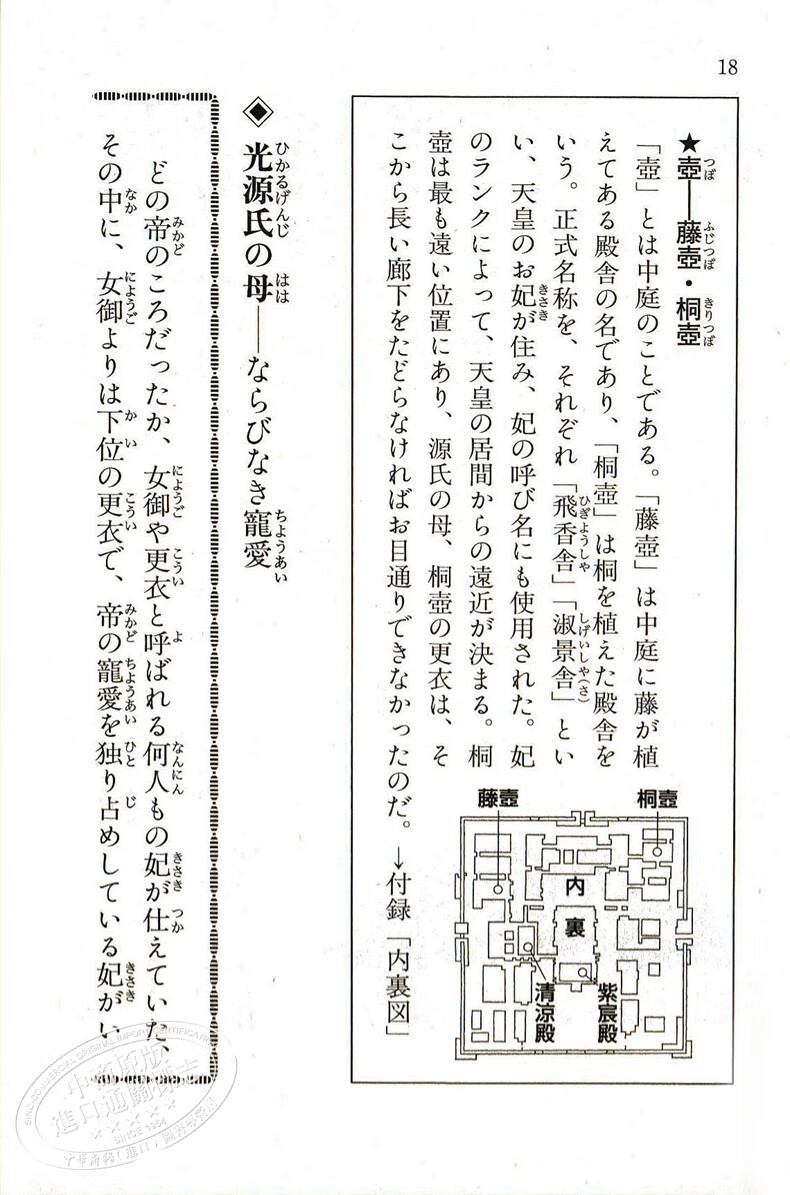 18
★壺――藤壺・桐壺
つぼ ふじつぼ きりつぼ
「壺」とは中庭のことである。「藤壺」は中庭に藤が植
えてある殿舎の名であり、「桐壺」は桐を植えた殿舎を
いう。正式名称を、それぞれ「飛香舎」「淑景舎」とい
ひぎようしや しげいしや(さ)
い、天皇のお妃が住み、妃の呼び名にも使用された。妃
きさき
のランクによって、天皇の居間からの遠近が決まる。桐
壺は最も遠い位置にあり、源氏の母、桐壺の更衣は、そ
こから長い廊下をたどらなければお目通りできなかったのだ。→付録「内裏図」
桐壺
藤壺
内裏
紫宸殿
清涼殿
◆光源氏の母――ならびなき寵愛
ひかるげんじ はは ちようあい
どの帝のころだったか、女御や更衣と呼ばれる何人もの妃が仕えていた、
みかど にようご こうい よ なんにん きさき つか
その中に、女御よりは下位の更衣で、帝の寵愛を独り占めしている妃がい
なか にようご かい こうい みかど ちようあい ひと じ きさき
中商原版
進口通關師吉
SINCE 1984